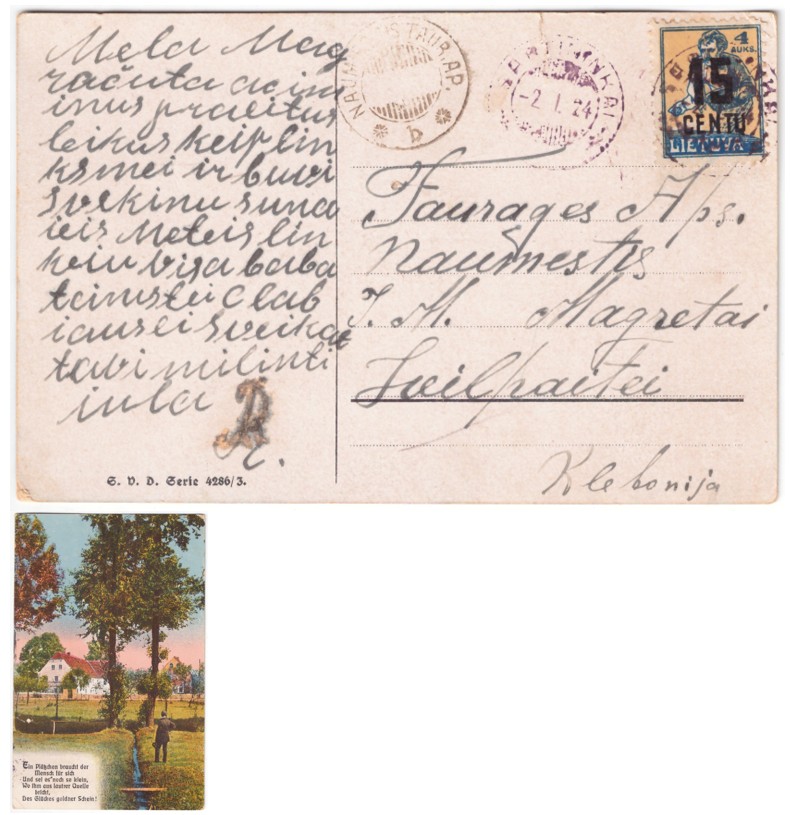 Mela Mag
račuta acim
inus praeitus
leikus keip lin
ksmei ir buvi
Svekinu suna
ieis Meteis lin
keiu visa baba
teimstei C lab
iausei sveikat
tavi milinti
iula
NAUMIESTIS TAUR. AP.
b
BARTININKAI
-2. I. 24
4
AUKS.
15
CENTŲ
LIETUVA
Taurages Aps.
Naumestis
J. M. Magretai
Klebonija
S. V. D. Serie 4286/3.
Ein Plätzchen braucht der
Mensch für sich
Und sei es noch so klein,
Wo ihm aus lautrer Quelle
bricht,
Des Glückes goldner Schein!